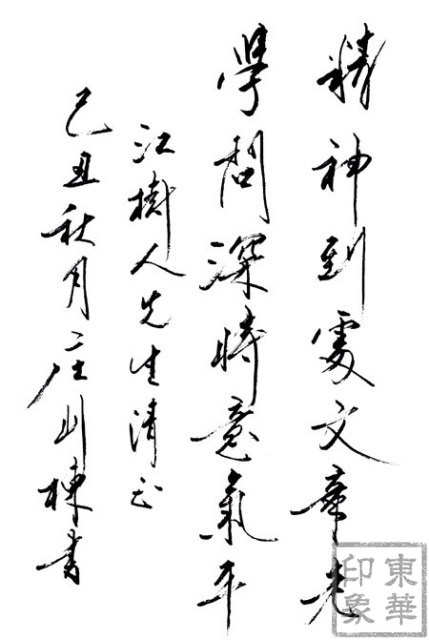 精神到處文章老
學問深時意氣平
江樹人先生清正
己丑秋月庄棟書
東華
印象